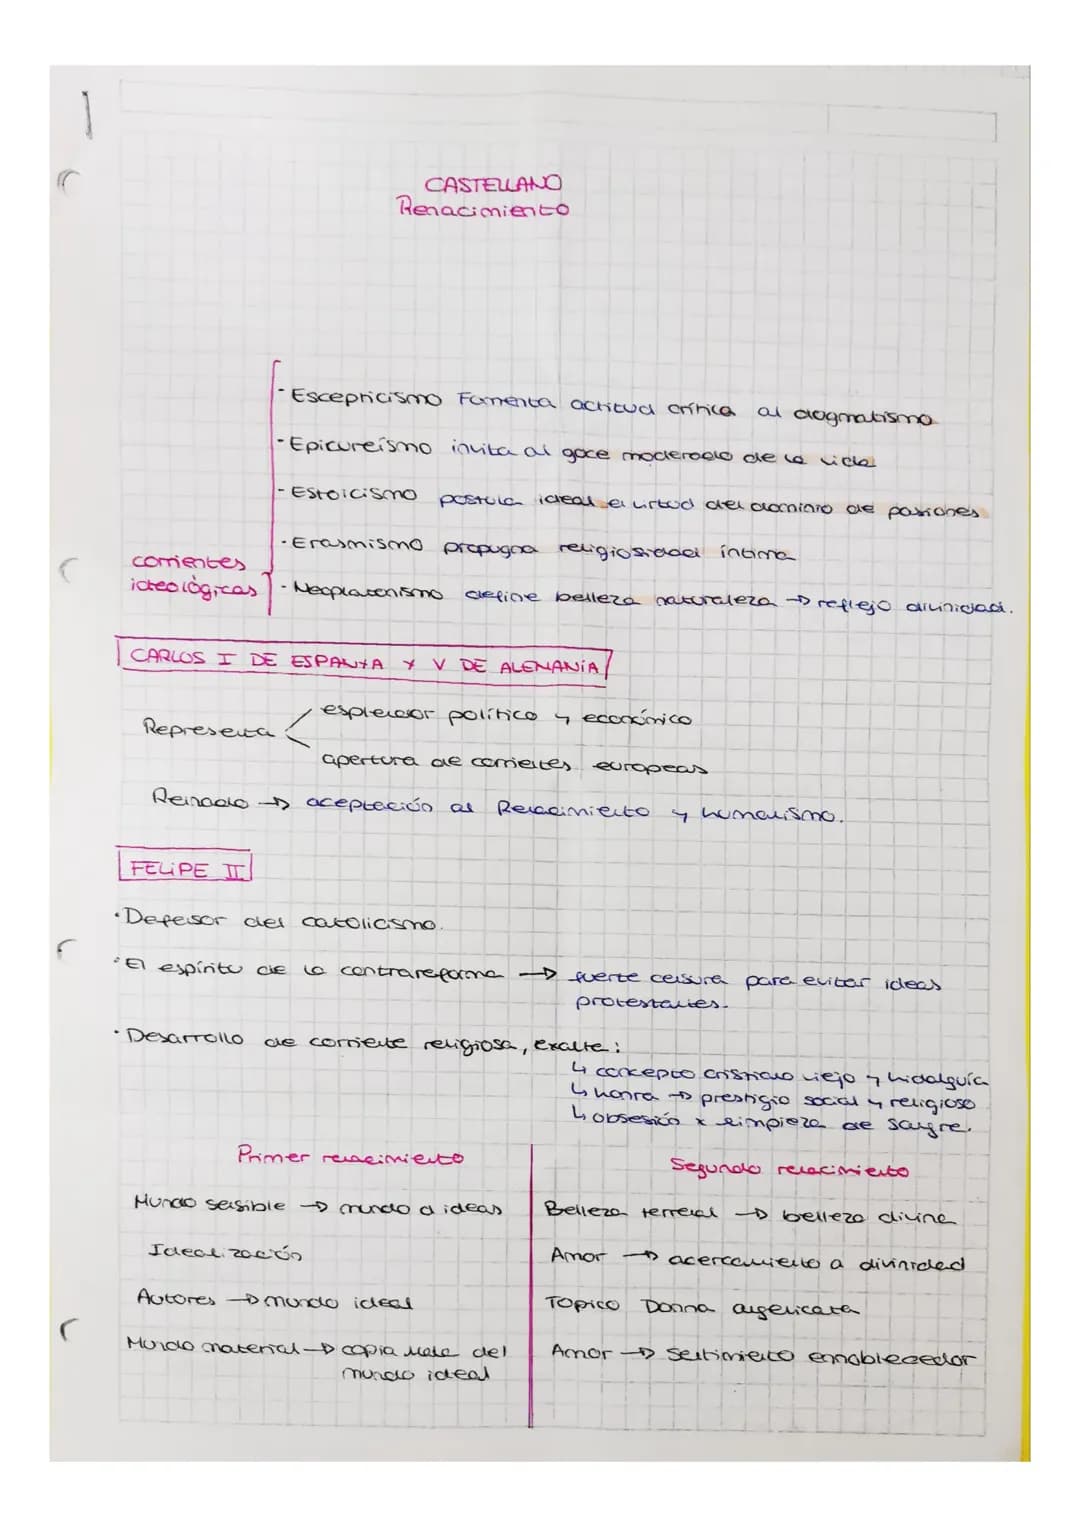 CASTELLANO
Renacimiento
· Escepticismo Fomenta actitud crítica al dogmatismo
· Epicureísmo invita al goce moderado de la vida
· Estoicismo postula ideal el virtud del dominio de pasiones
· Erasmismo propugna religiosidad íntima
· Neoplatonismo define belleza naturaleza → reflejo divinidad.
corrientes
ideológicas
CARLOS I DE ESPANYA Y V DE ALEMANIA
Representa
esplendor político y económico
apertura de corrientes europeas
Reinado → aceptación al Renacimiento y humanismo.
FELIPE II
· Defensor del catolicismo.
· El espíritu de la contrareforma → fuerte censura para evitar ideas
protestantes.
· Desarrollo de corriente religiosa, exalte:
↳ concepto cristiano viejo y hidalguía
↳ honra → prestigio social y religioso
↳ obsesión x limpieza de sangre.
Primer renacimiento
Mundo sensible → mundo d ideas
Idealización
Autores → mundo ideal
Mundo material → copia mala del
mundo ideal
Segundo renacimiento
Belleza terrenal → belleza divina
Amor → acercamiento a divinidad
Topico Donna angelicata
Amor → sentimiento ennoblecedor